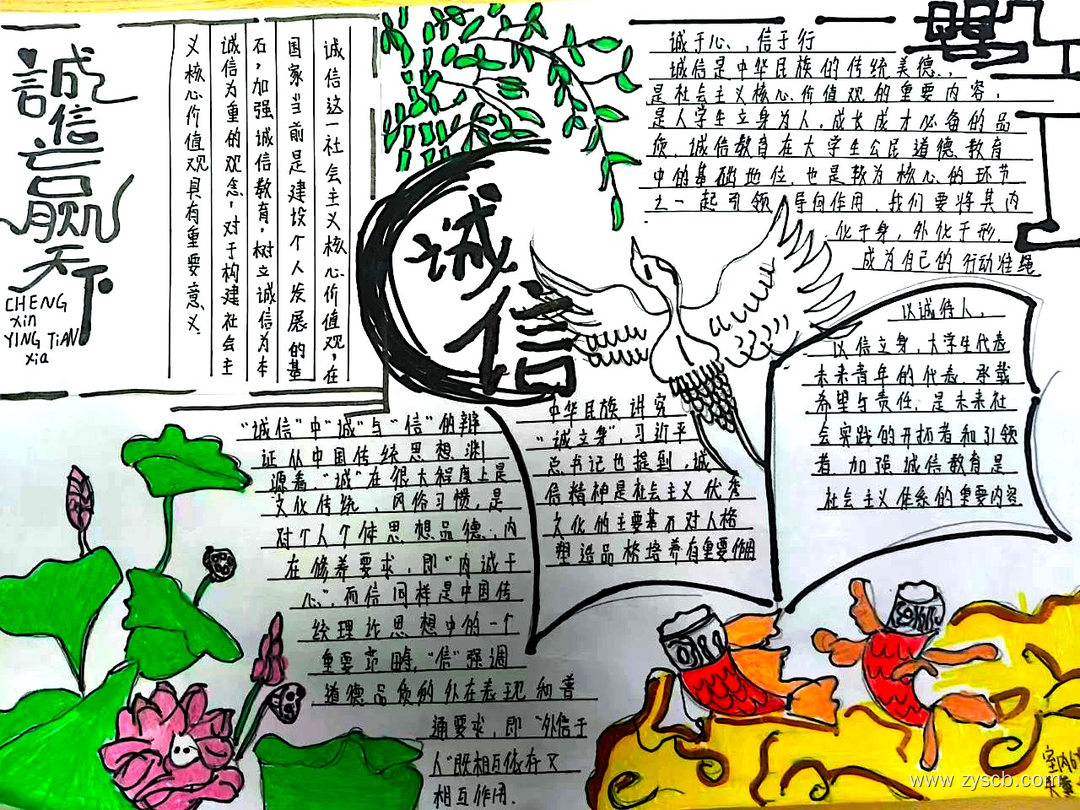 誠信言贏天下
CHENG
xin
YING TiAN
xia
诚信这一社会主义核心价值观，在
国家当前是建设个人发展的基
石，加强诚信教育，树立诚信为本
诚信为重的观念，对于构建社会主
义核心价值观具有重要意义
诚信
诚于心，信于行
诚信是中华民族的传统美德，
是社会主义核心价值观的重要内容，
是人学生立身为人，成长成才必备的品
质，诚信教育在大学生公民道德教育
中的基础地位，也是较为核心的环节
之一起引领，导向作用，我们要将其内
化于身，外化于形，
成为自己的行动准绳
"诚信"中"诚"与"信"的辩
证从中国传统思想渊
源看，"诚"在很大程度上是
文化传统、风俗习惯，是
对个人个体思想品德，内
在修养要求，即"内诚于
心"，而信同样是中国传
统理论思想中的一个
重要范畴，"信"强调
道德品质的外在表现和普
通要求，即"外信于
人"既相互依存又
相互作用.
中华民族讲究
"诚立身"，习近平
总书记也提到，诚
信精神是社会主义优秀
文化的主要基石对人格
塑造品格培养有重要作用
以诚待人，
以信立身，大学生代表
未来青年的代表，承载
希望与责任，是未来社
会实践的开拓者和引领
者 加强诚信教育是
社会主义体系的重要内容
www.zyscb.com